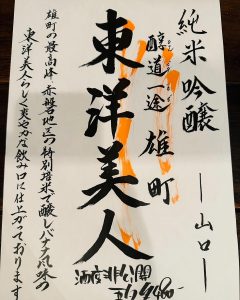 純米吟醸 ―山口―
醇道一途 雄町
東洋美人
雄町の最高峰・赤磐地区の特別培米で醸しバナナ風味の
東洋美人らしく爽やかな飲み口に仕上がっております